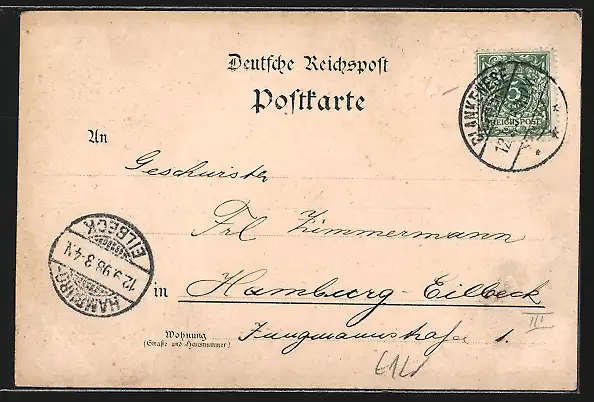 Deutsche Reichspost
Postkarte
BLANKENESE
12
5
REICHSPOST
An
Geschwister
Frl Zimmermann
HAMBURG-
EILBECK
12.3.98.3-4.N.
in Hamburg-Eilbeck
III
Wohnung
(Straße und Hausnummer)
Jungmannstraße 1.